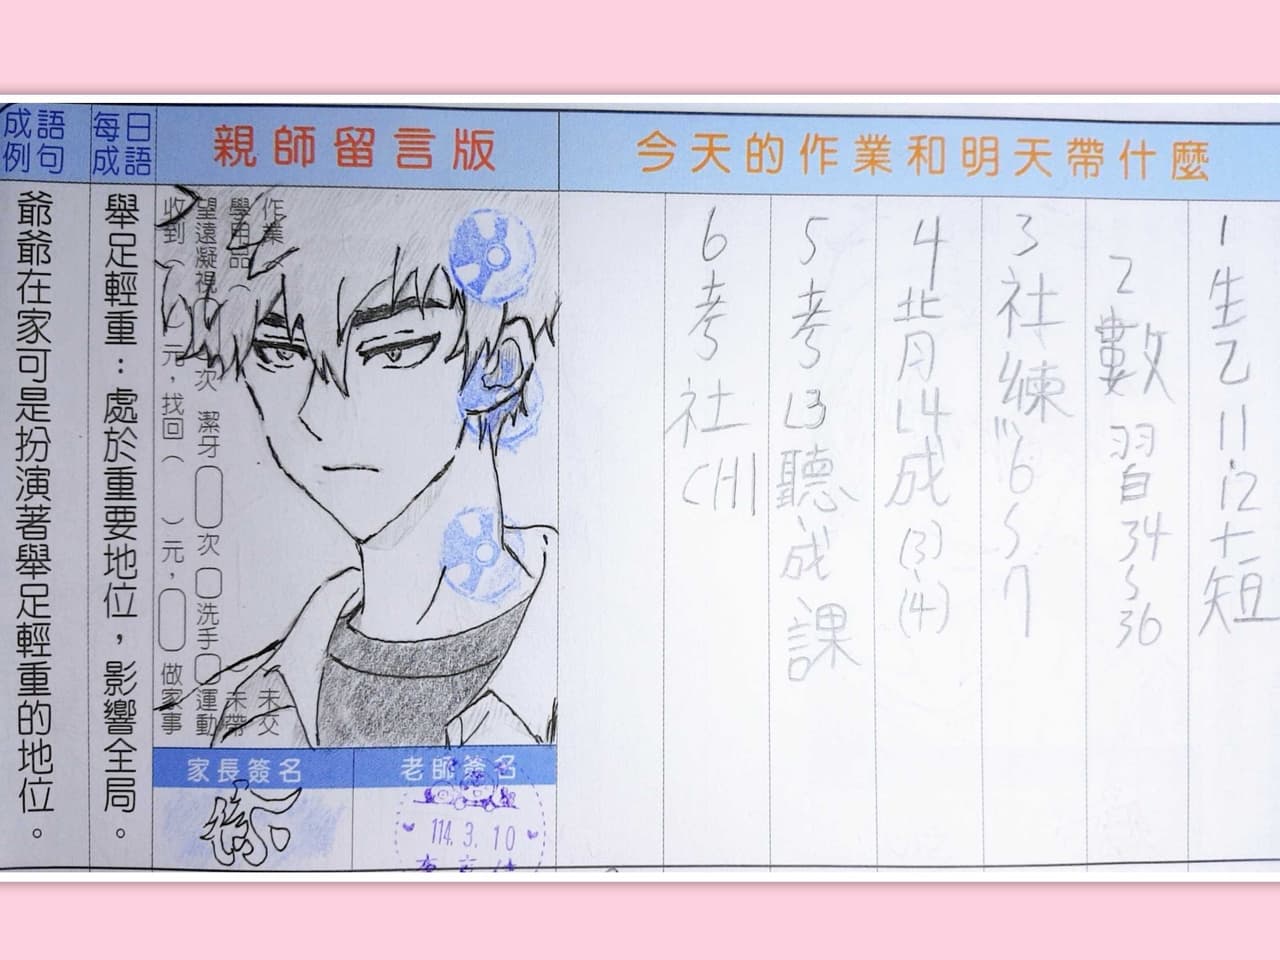 今天的作業和明天帶什麼
1生乙11.12+短
2數習34
36
3社練
4背L4成(3).(4)
5考L3聽.成.課
6考社CH1
親師留言版
作業
未交
學用品
未帶
望遠凝視
次 潔牙
次
洗手
運動
收到(
)元，找回(
)元，
做家事
家長簽名
老師簽名
徐
114.3.10
每日成語
舉足輕重：處於重要地位，影響全局。
成語例句
爺爺在家可是扮演著舉足輕重的地位。